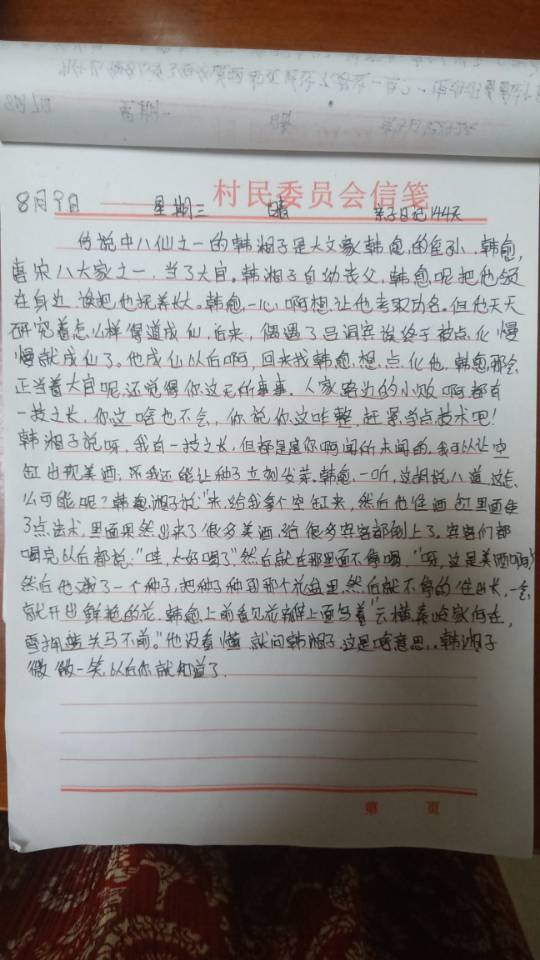 村民委员会信笺
8月9日 星期三 晴 亲子日记144天
传说中八仙之一的韩湘子是大文豪韩愈的侄孙,韩愈,
唐宋八大家之一,当了大官。韩湘子自幼丧父,韩愈呢把他领
在身边 该把他抚养长大。韩愈一心啊想让他考取功名。但他天天
研究着怎么样得道成仙 后来,偶遇了吕洞宾该终于被点化 慢
慢就成仙了。他成仙以后啊,回来找韩愈,想点化他,韩愈那会
正当着大官呢,还觉得你这无所事事,人家路边的小贩啊都有
一技之长,你这啥也不会,你说你这咋整,赶紧学点技术吧!
韩湘子说呀,我有一技之长,但都是你啊闻所未闻的,我可以让空
缸出现美酒,我还能让种子立刻发芽,韩愈一听,这胡说八道这怎
么可能呢?韩湘子说:"来,给我拿个空缸来,然后他往酒缸里面
了点法术,里面果然出来了很多美酒,给很多宾客都倒上了。宾客们都
喝完以后都说:"哇,太好喝了"然后就在那里面不停喝"呀,这是美酒啊"
然后他 了一个种子,把种子种到那个花盆里,然后就不停的往出长,一会
就开出鲜艳的花,韩愈上前看见花瓣上面写着"云横秦岭家何在,
雪拥蓝关马不前。"他没看懂 就问韩湘子,这是啥意思,韩湘子
微微一笑,以后你就知道了.
第 页